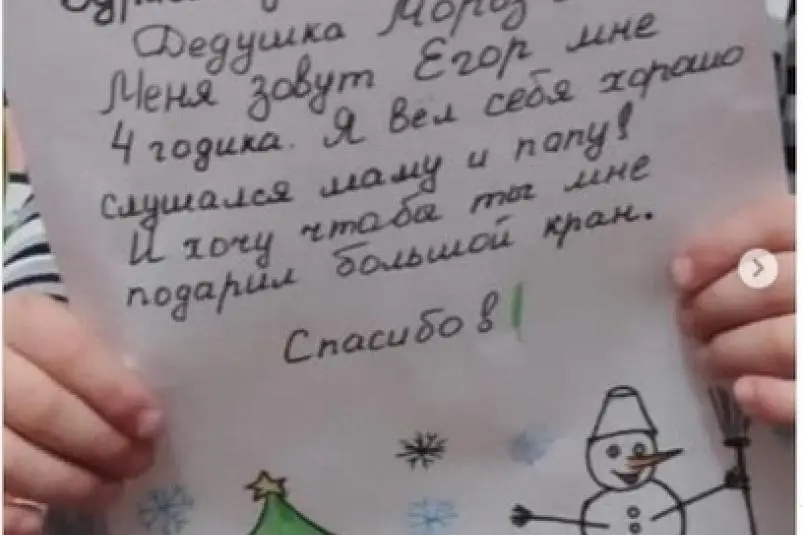 Дедушка Мороз
Меня зовут Егор мне
4 годика. Я вёл себя хорошо
слушался маму и папу!
И хочу чтаба ты мне
подарил большой кран.
Спасибо!